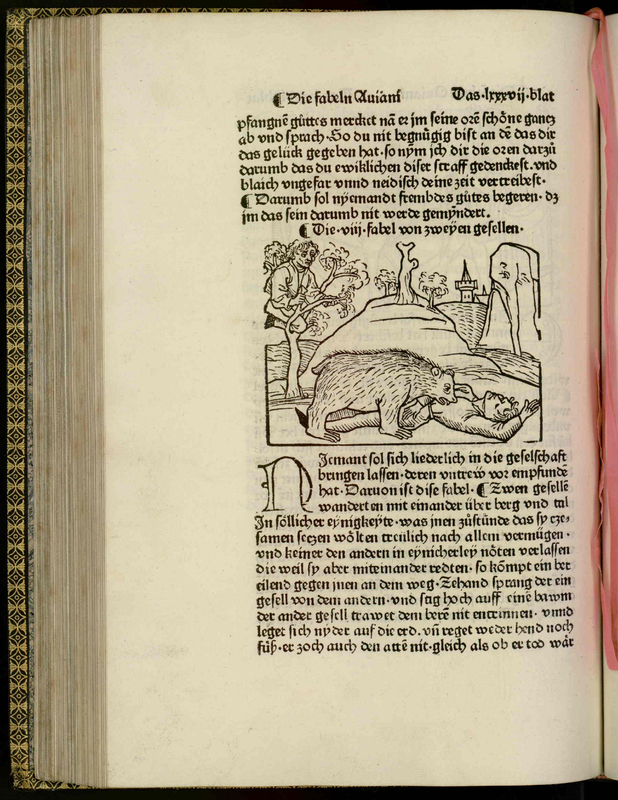 ¶ Die fabeln Auiani Das·lxxxvij·blat
pfangnē gůttes mercket nā er jm seine orē schŏne gancz
ab vnd sprach·So du nit begnŭgig bist an dē das dir
das gelück gegeben hat·so nym̄ jch dir die oren darzů
darumb das du ewiklichen diser straff gedenckest·vnd
blaich vngefar vnnd neidisch deine zeit vertreibest·
¶ Darumb sol nyemandt frembdes gůtes begeren·dz
jm das sein darumb nit werde gemyndert.
¶ Die·viij·fabel von zweyen gesellen·
NJemant sol sich liederlich in die geselschaft
bringen lassen·deren vntrew vor empfundē
hat·Daruon ist dise fabel·¶ Zwen gesellē
wanderten mit einander über berg vnd tal
Jn sŏllicher eynigkeyte·was jnen zůstůnde das sy eze⸗
samen seczen wŏlten treulich nach allem vermügen·
vnd keiner den andern in eynicherley nŏten verlassen
die weil sy aber miteinander redten·so kŏmpt ein ber
eilend gegen jnen an dem weg·Zehand sprang der ein
gesell von dem andern·vnd stig hoch auff einē bawm
der ander gesell trawet dem berē nit entrinnen·vnnd
leget sich nyder auf die erd·vn̄ reget weder hend noch
fůß·er zoch auch den attē nit·gleich als ob er tod wăr